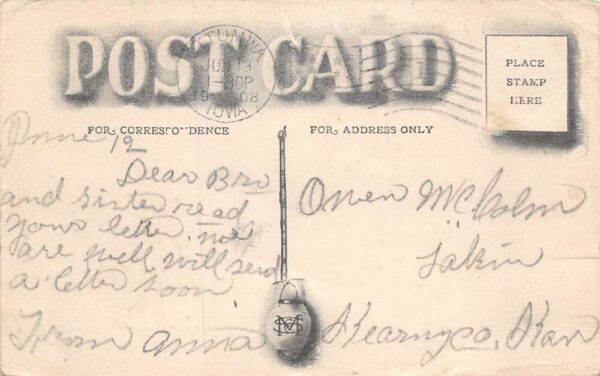 POST CARD
OTTUMWA
JUN 13
1-30P
1908
IOWA
PLACE
STAMP
HERE
FOR CORRESPONDENCE
FOR ADDRESS ONLY
June 12
Dear Bro
and sister recd
your letter. we
are well will send
a letter soon
From Anna
Owen McColm
Lakin
Kearny co, Kan